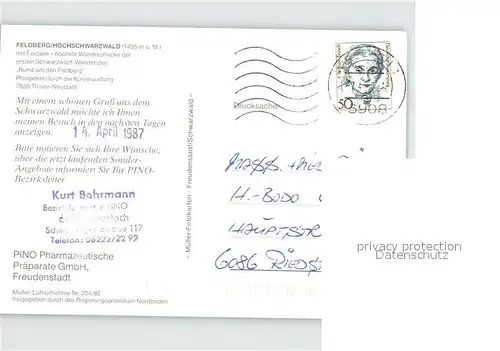 FELDBERG/HOCHSCHWARZWALD (1495 m ü. M.)
mit Feldsee – höchste Wanderstrecke der
ersten Schwarzwald-Wanderidee
„Rund um den Feldberg"
Prospekte durch die Kurverwaltung
7828 Titisee-Neustadt
Mit einem schönen Gruß aus dem
Schwarzwald möchte ich Ihnen
meinen Besuch in den nächsten Tagen
anzeigen.
14. April 1987
Bitte notieren Sie sich Ihre Wünsche,
über die jetzt laufenden Sonder-
Angebote informiert Sie Ihr PINO-
Bezirksleiter
Kurt Bahrmann
PINO
117
Telefon: 06222/22 92
PINO Pharmazeutische
Präparate GmbH,
Freudenstadt
Müller-Luftaufnahme Nr. 204/80
freigegeben durch das Regierungspräsidium Nordbaden
– Müller-Fotokarten · Freudenstadt/Schwarzwald –
Drucksache
50
H.-BODO
HAUPTSTR
6086 RIEDS
privacy protection
Datenschutz